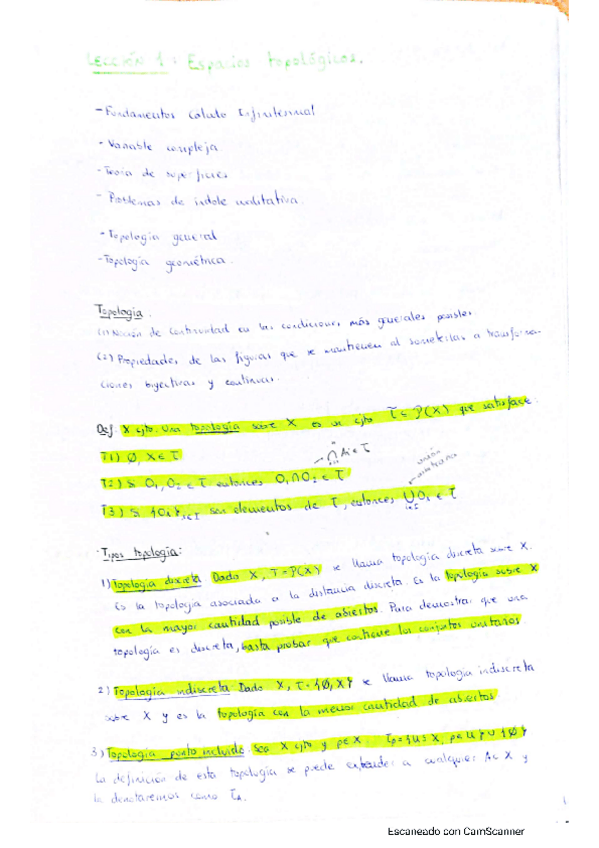 LECCIÓN 1: Espacios topológicos.
- Fundamentos Cálculo Infinitesimal
- Variable compleja
- Teoría de superficies
- Problemas de índole cualitativa.
- Topología general
- Topología geométrica.
Topología.
(1) Noción de continuidad en las condiciones más generales posibles.
(2) Propiedades de las figuras que se mantienen al someterlas a transforma-
ciones biyectivas y continuas.
Def. X cjto. Una topología sobre X es un cjto τ ⊆ P(X) que satisface:
T1) ∅, X ∈ τ
T2) Si O₁, O₂ ∈ τ entonces O₁ ∩ O₂ ∈ τ → ∩ Ai ∈ τ
unión arbitraria
T3) Si {Oi}i∈I son elementos de τ, entonces ∪ Oi ∈ τ
i∈I
· Tipos topología:
1) Topología discreta Dado X, τ = P(X) se llama topología discreta sobre X.
Es la topología asociada a la distancia discreta. Es la topología sobre X
con la mayor cantidad posible de abiertos. Para demostrar que una
topología es discreta, basta probar que contiene los conjuntos unitarios
2) Topología indiscreta: Dado X, τ = {∅, X} se llama topología indiscreta
sobre X y es la topología con la menor cantidad de abiertos
3) Topología punto incluido: Sea X cjto y p ∈ X τp = {U ⊆ X, p ∈ U} ∪ {∅}
La definición de esta topología se puede extender a cualquier A ⊂ X y
la denotaremos como τA.
Escaneado con CamScanner